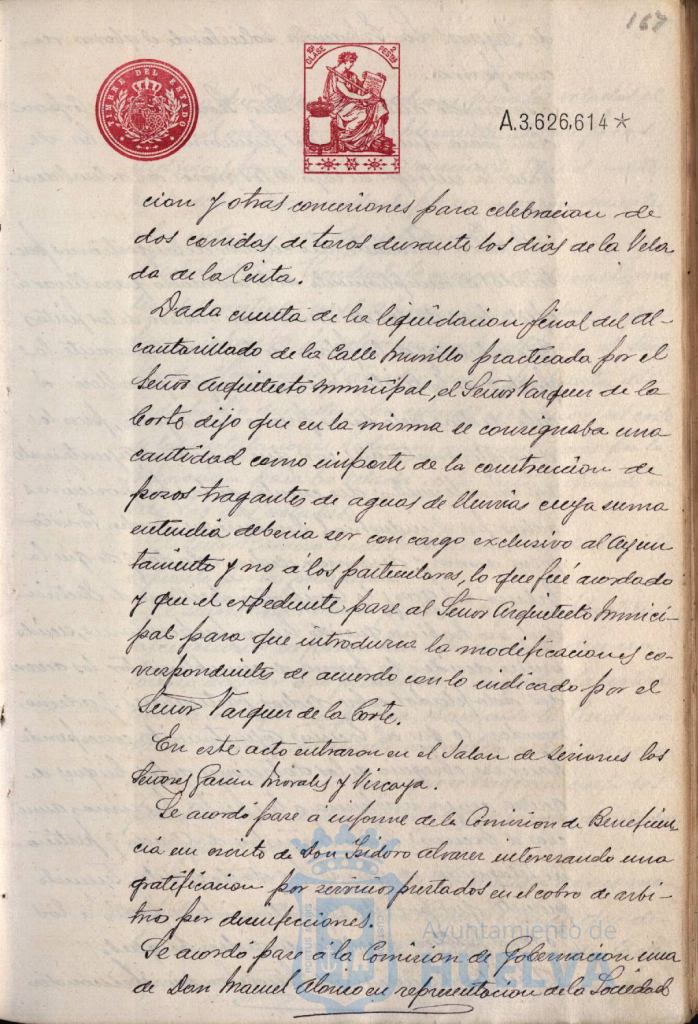 167
TIMBRE DEL ESTADO
10ª CLASE 2 PESTAS
A.3.626.614*
cion y otras concesiones para celebracion de
dos corridas de toros durante los dias de la Vela
da de la Cinta.
Dada cuenta de la liquidacion final del Al-
cantarillado de la Calle Murillo practicada por el
Señor Arquitecto Municipal, el Señor Vazquez de la
Corte dijo que en la misma se consignaba una
cantidad como importe de la construccion de
pozos tragantes de aguas de lluvias cuya suma
entendia deberia ser con cargo exclusivo al Ayun-
tamiento y no á los particulares, lo que fué acordado
y que el expediente pase al Señor Arquitecto Munici-
pal para que introduzca la modificaciones co-
rrespondientes de acuerdo con lo indicado por el
Señor Vazquez de la Corte.
En este acto entraron en el Salon de sesiones los
Señores Garcia Morales y Vizcaya.
Se acordó pase á informe de la Comision de Beneficen-
cia un escrito de Don Isidoro Alvarez interesando una
gratificacion por servicios prestados en el cobro de arbi-
trio por desinfecciones.
Se acordó pase á la Comision de Gobernacion una
de Don Manuel Alonso en representacion de la Sociedad
Ayuntamiento de
HUELVA